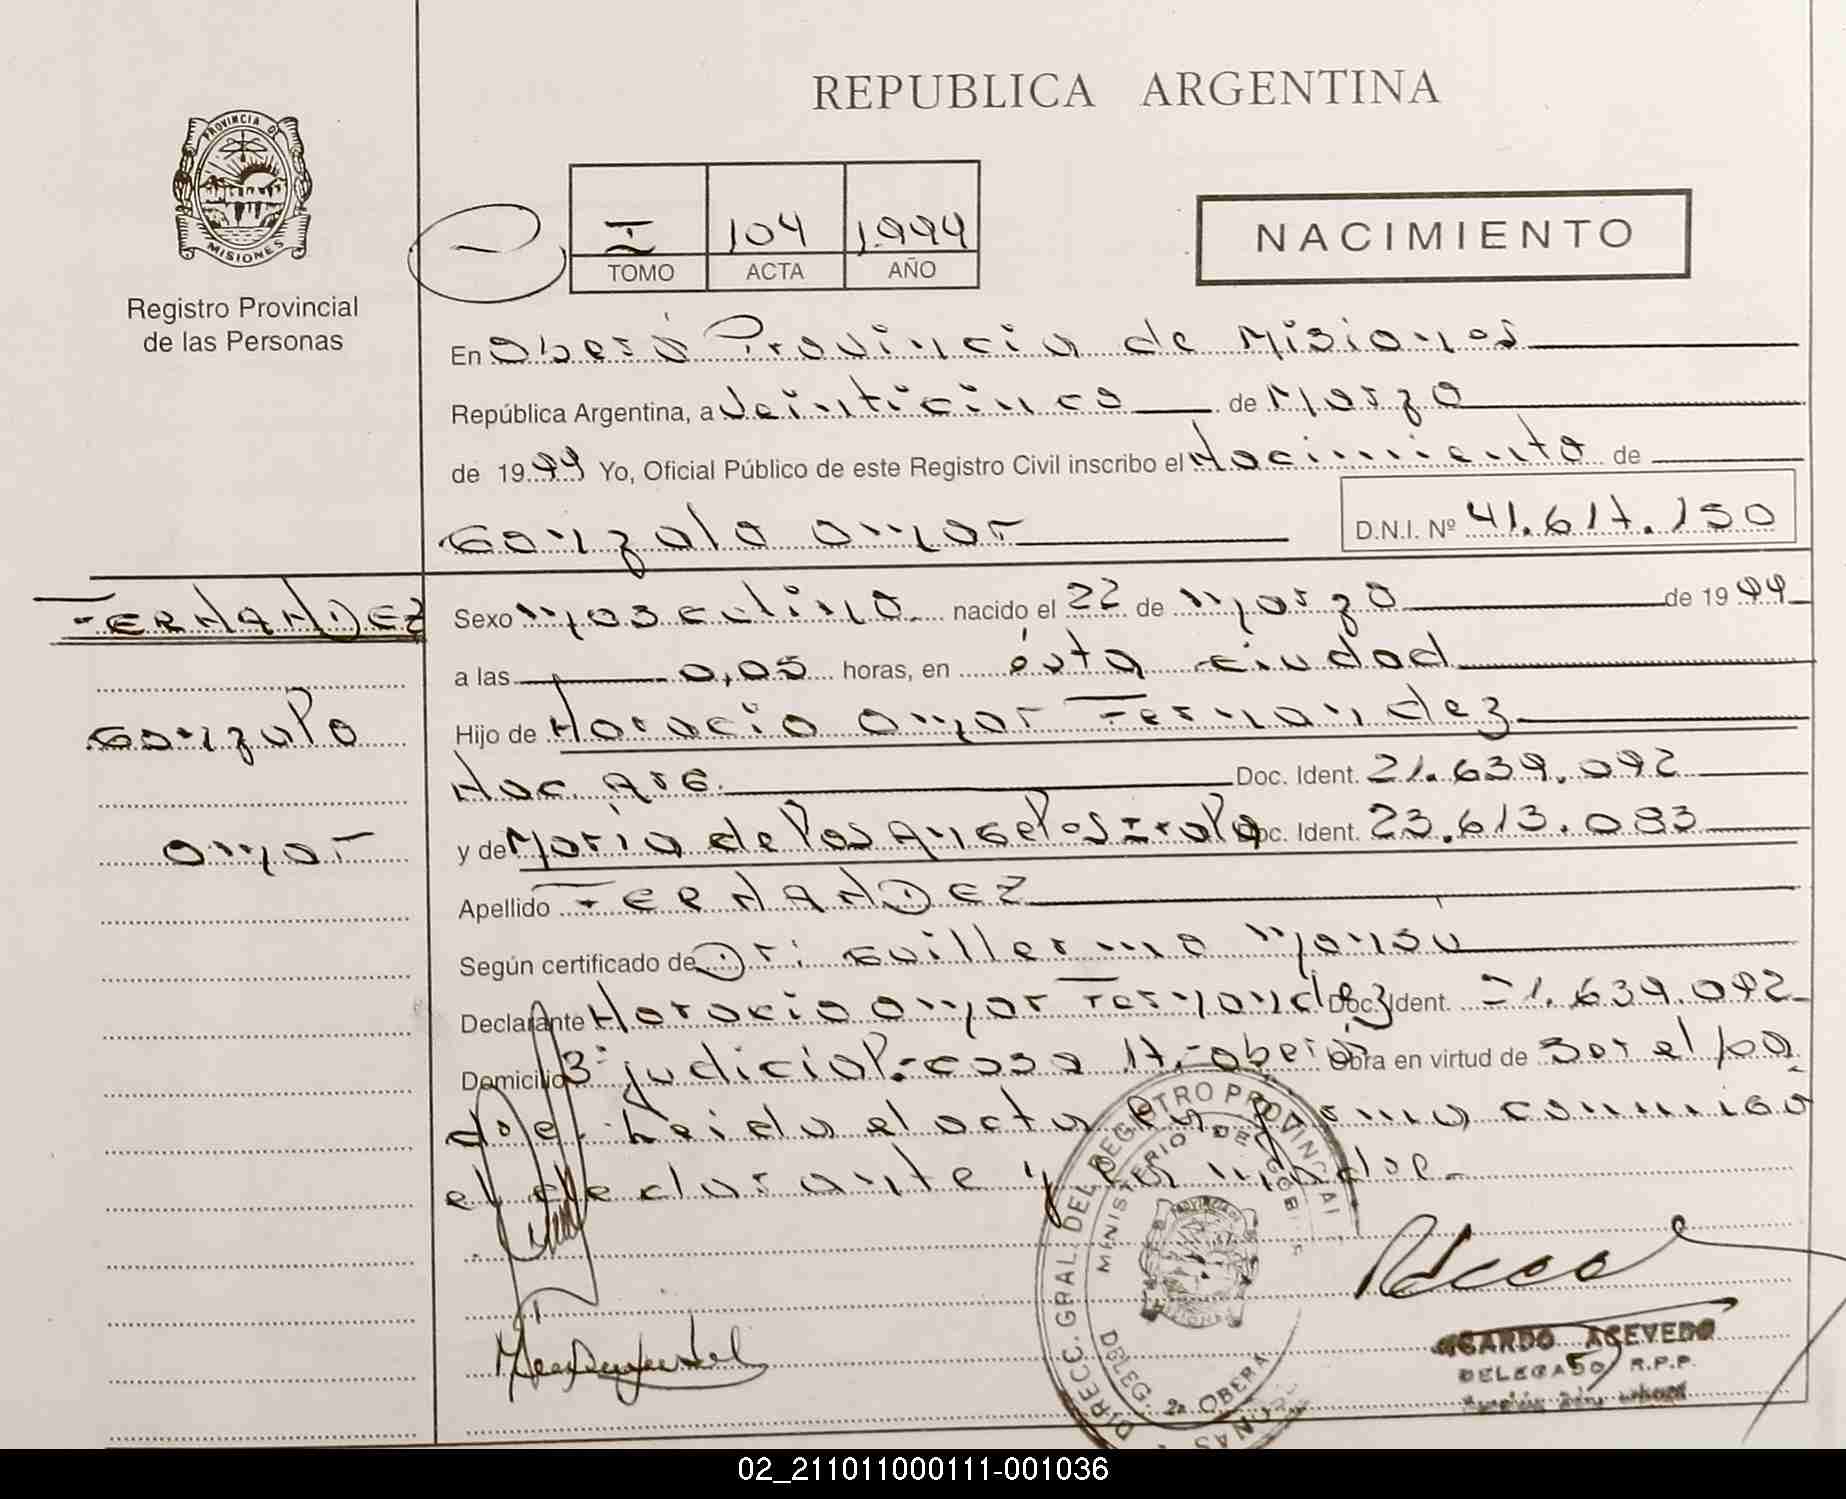 REPUBLICA ARGENTINA
PROVINCIA DE
MISIONES
Registro Provincial
de las Personas
I 104 1.999
TOMO ACTA AÑO
NACIMIENTO
En Oberá Provincia de Misiones
República Argentina, a Veinticinco de Marzo
de 1999 Yo, Oficial Público de este Registro Civil inscribo el Nacimiento de
Gonzalo Omar
D.N.I. Nº 41.617.150
FERNANDEZ
Gonzalo
Omar
Sexo masculino nacido el 22 de marzo de 1999
a las 0,05 horas, en ésta ciudad
Hijo de Horacio Omar Fernandez
Nac. Arg. Doc. Ident. 21.639.092
y de María de los Angeles Irala Doc. Ident. 23.613.083
Apellido FERNANDEZ
Según certificado de Dr: Guillermo
Declarante Horacio Omar Fernandez Doc. Ident. 21.639.092
Domicilio Bº judicial-casa 17-Oberá Obra en virtud de Ser el pa
dre. Leida el acta la firma conmigo
el declarante y la madre.
DIRECC. GRAL. DEL REGISTRO PROVINCIAL
MINISTERIO DE GOBIER
DELEG. 2a OBERA
ACEVEDO
DELEGADO R.P.P.
02_211011000111-001036